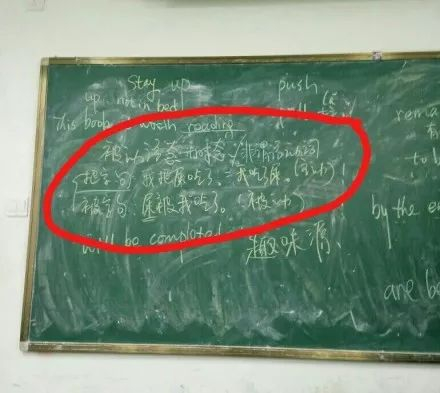 Stay up
up, not in bed
push
This book is worth reading
被动语态 时态 非谓语动词
把字句：我把屎吃了。=我吃屎。(主动)
被字句：屎被我吃了。(被动)
will be completed
趣味
by the en
are be